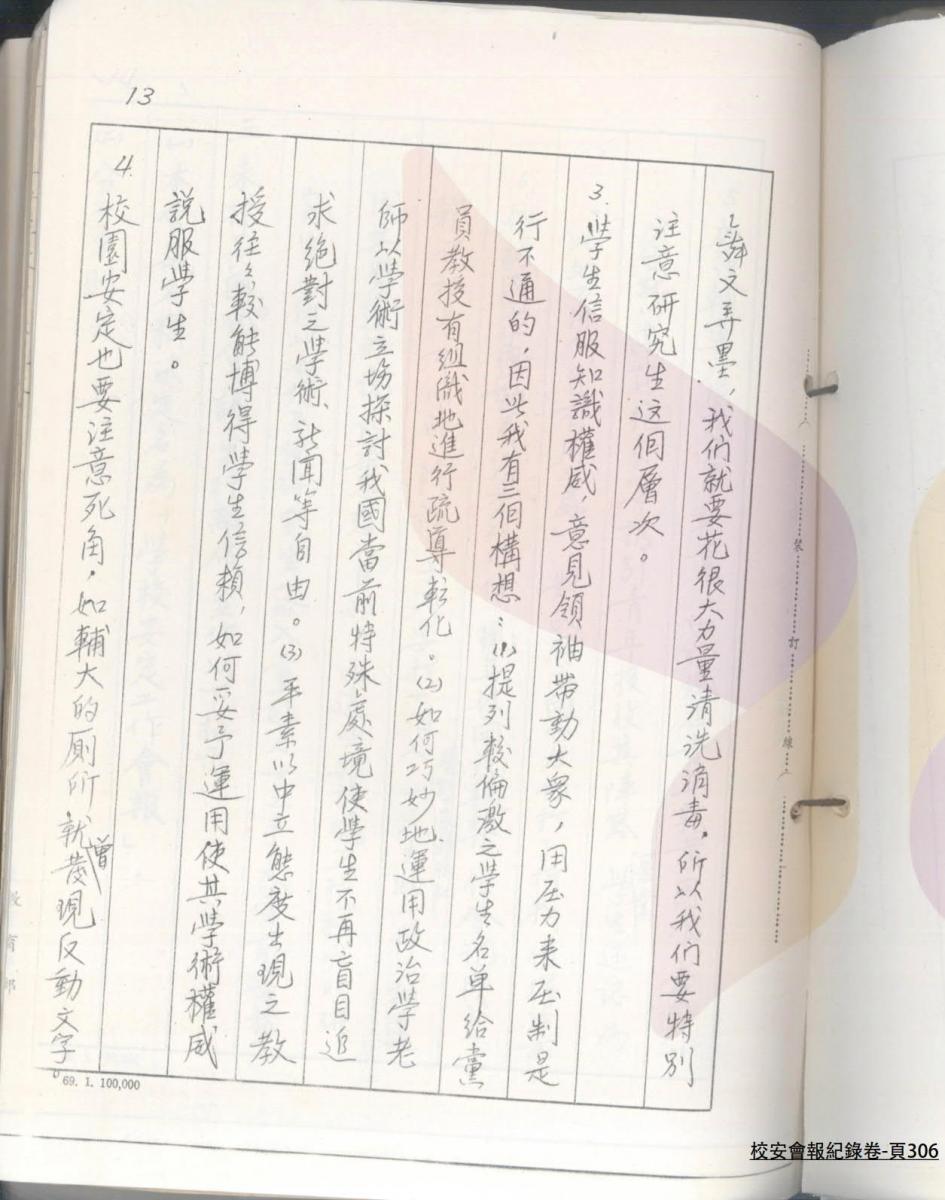 13
舞文弄墨，我们就要花很大力量清洗消毒。所以我们要特別
注意研究生这個層次。
3.學生信服知識權威，意見領袖帶動大衆，用压力来压制是
行不通的，因此我有三個構想：⑴提列較偏激之學生名单給黨
員教授有組織地進行疏導転化。⑵如何巧妙地運用政治學老
師以學術立場探討我國當前特殊處境使學生不再盲目追
求絕對之學術、新聞等自由。⑶平素以中立態度出現之教
授往々較能博得學生信賴，如何妥予運用使其學術權威
説服學生。
4.校園安定也要注意死角，如輔大的厠所就曾發現反動文字。
69. 1. 100,000
裝
訂
線
教育部
校安會報紀錄卷-頁306